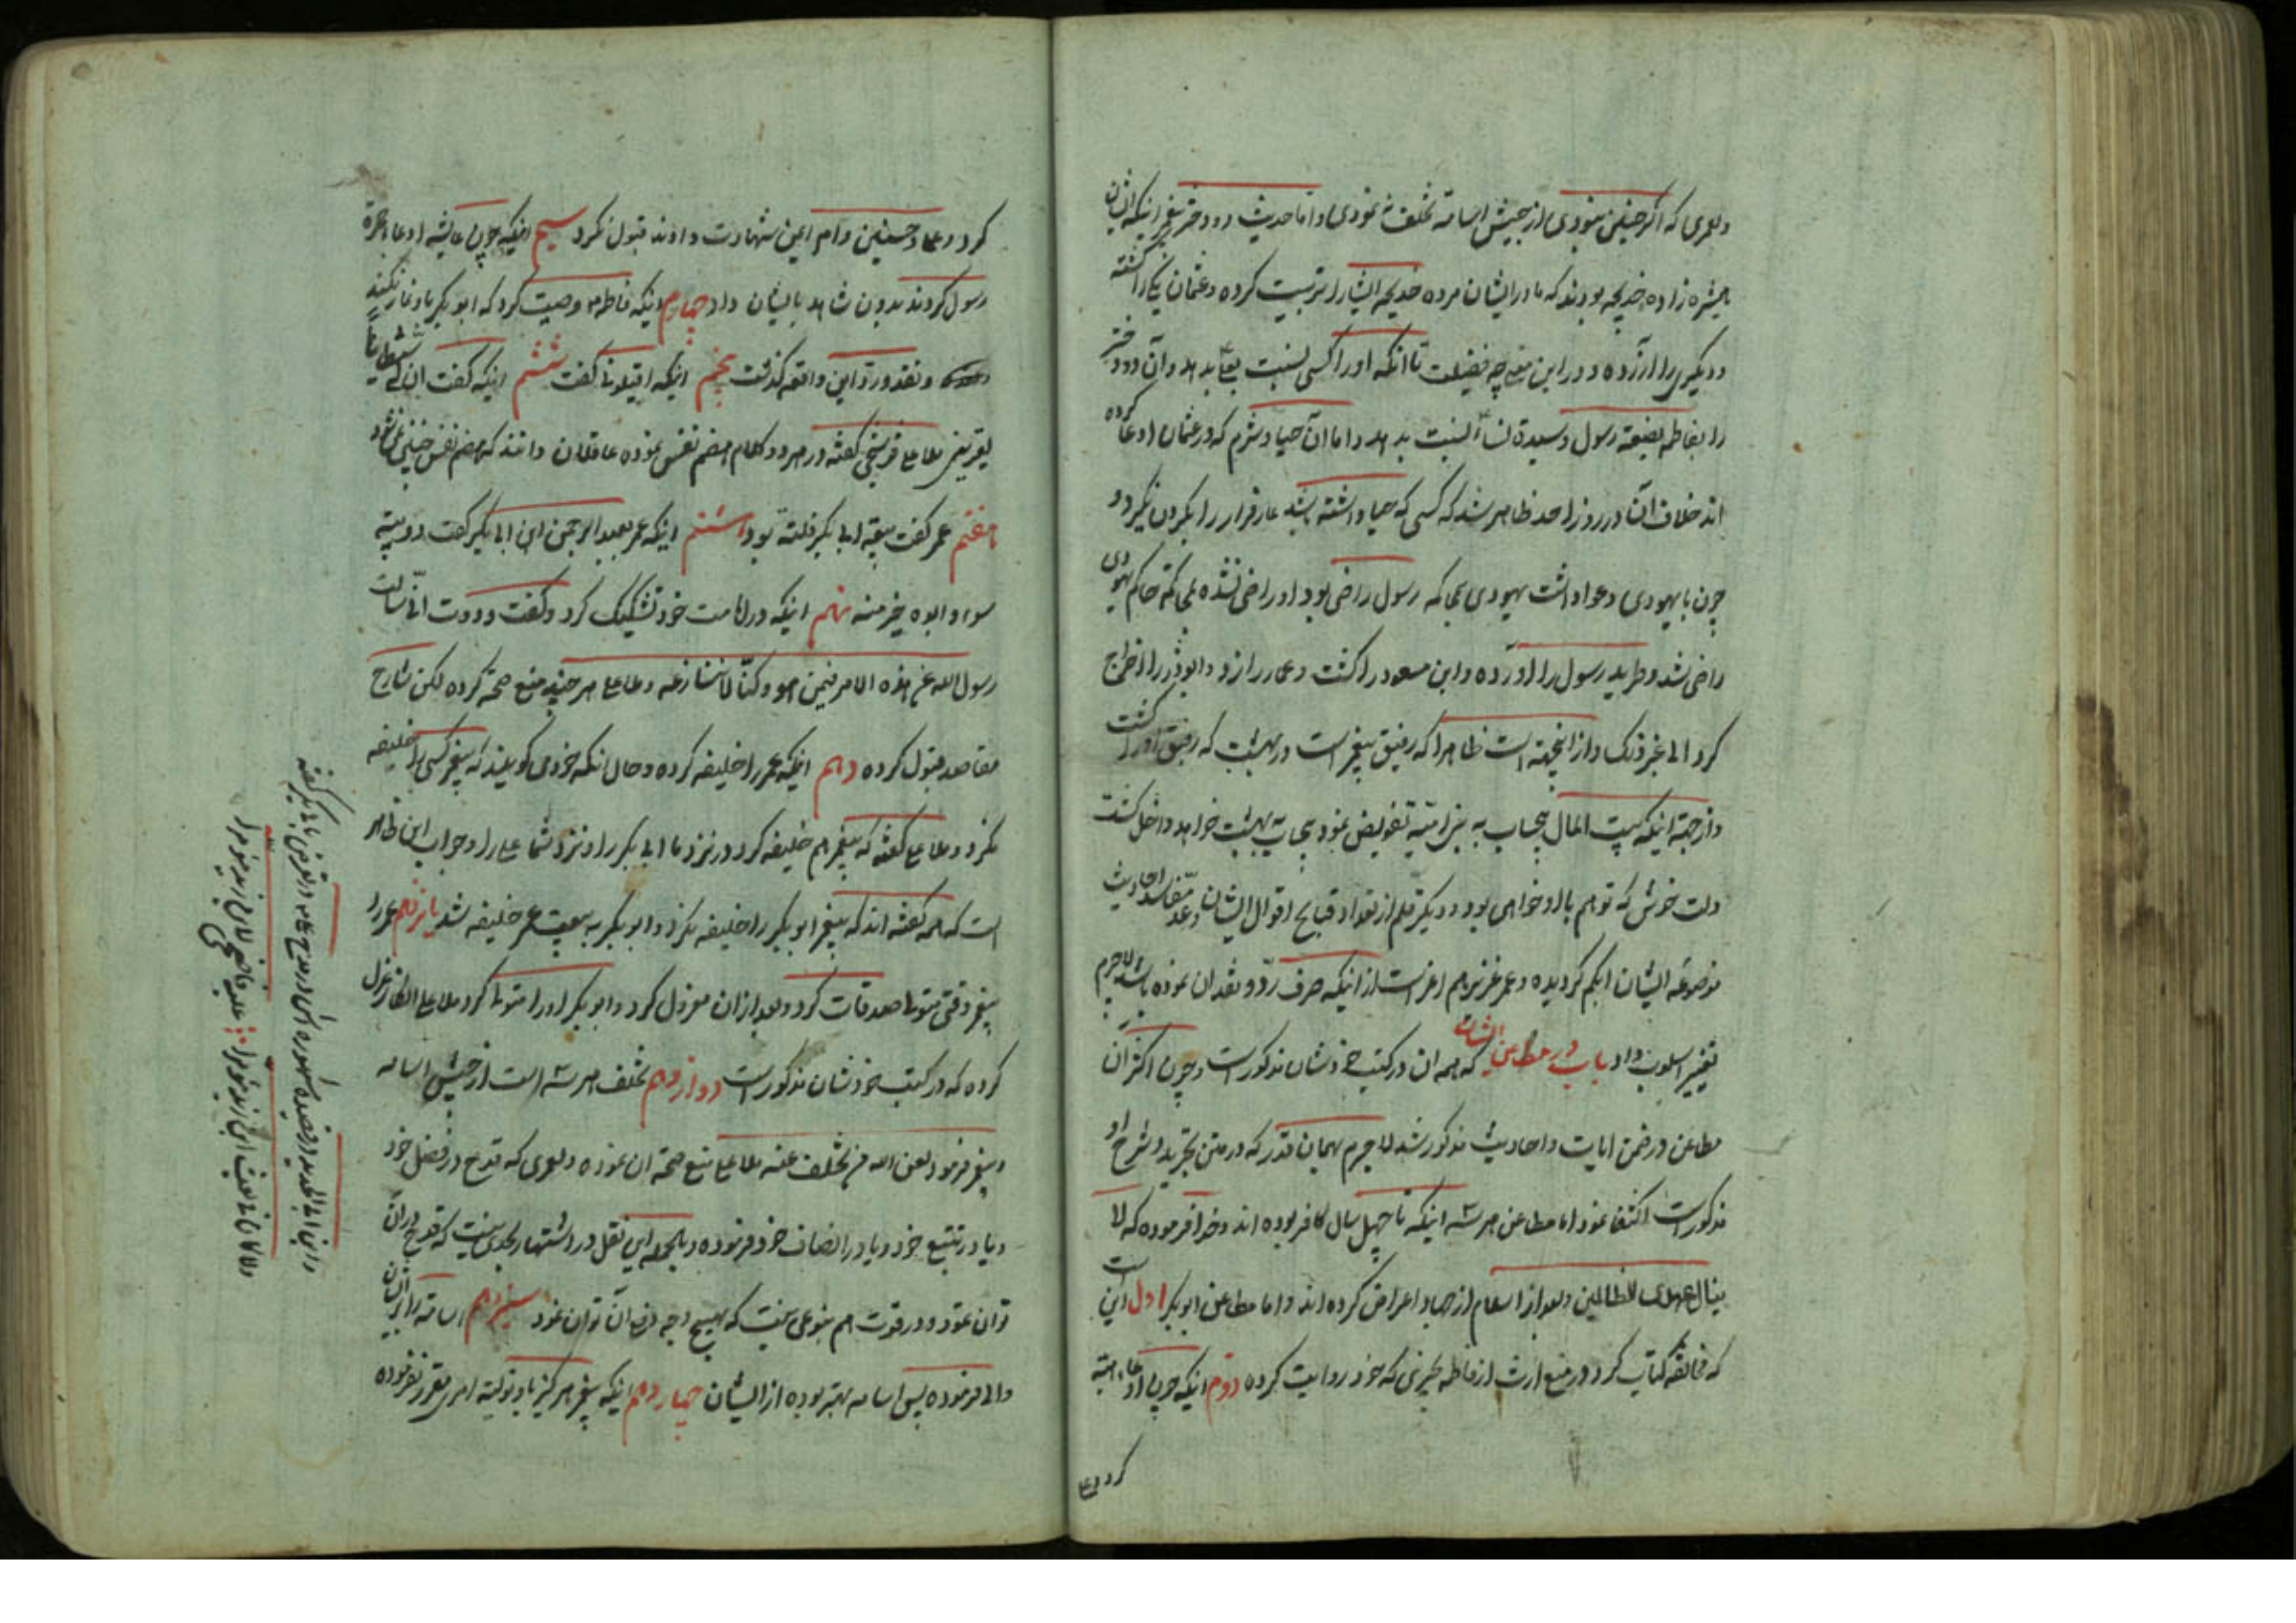 ولعری که اگر چنین میبودی از جیش اسامة تخلف نه نمودی و اما حدیث دو دختر پیغمبر اینکه ایشان
همشیره زاده خدیجه بودند که مادر ایشان مرده خدیجه ایشانرا تربیت کرده و عثمان یکی را کشته
و دیگری را آزرده و در این معنی چه فضیلت تا آنکه او را کسی نسبت بعلی بدهد و آن دو دختر
را بفاطمه بضعة رسول و سیدة نساء نسبت بدهد و اما آن حیا و شرم که در عثمان ادعا کرده
اند خلاف آن در روز احد ظاهر شد که کسی که حیا داشته باشد عار فرار را بگردن نگیرد و
چون با یهودی دعوا داشت یهودی بمحاکمه رسول راضی بود او راضی نشده بمحاکمه حاکم یهودی
راضی شد و طرید رسول را آورده و ابن مسعود را کشت و عمار را زد و ابوذر را اخراج
کرد الی غیر ذلک و از اینجهت است ظاهرا که رفیق پیغمبر است در بهشت که رفیق او را کشت
و از جهة اینکه بیت المال بیحساب به بنی امیه تفویض نمود بیحساب به بهشت خواهد داخل گشت
دلت خوش که تو هم با او خواهی بود و دیگر قلم از تعداد قبایح اقوال ایشان وعد مفاسد احادیث
موضوعه ایشان ابکم گردیده و عمر عزیز هم اعز است از اینکه صرف رد و نقد آن نموده باشد لاجرم
تغییر اسلوب داد باب در مطاعن ایشان که همه آن در کتب خودشان مذکور است و چون اکثر آن
مطاعن در ضمن ایات و احادیث مذکور شد لاجرم بهمان قدر که در متن تجرید و شرح او
مذکور است اکتفا نمود اما مطاعن هر سه اینکه تا چهل سال کافر بوده اند و خدا فرموده که لا
ینال عهدی الظالمین و بعد از اسلام از جهاد اعراض کرده اند و اما مطاعن ابو بکر اول این است
که مخالفة کتاب کرد در منع ارث از فاطمه بخبری که خود روایت کرده دوم اینکه چون ادعاء هبة
کرد و علی
کرد و علی و حسنین و ام ایمن شهادت دادند قبول نکرد سیم اینکه چون عایشه ادعاء حجرة
رسول کردند بدون شاهد بایشان داد چهارم اینکه فاطمه وصیت کرد که ابو بکر باو نماز نکند
و نقد و رد این واقعه گذشت پنجم اینکه اقیلونی گفت ششم اینکه گفت ان لی شیطانا
یعترینی ملا علی قوشچی گفته در هر دو کلام هضم نفس نموده عاقلان دانند که هضم نفس چنین نمیشود
هفتم عمر گفت بیعة ابی بکر فلتة بود هشتم اینکه عمر بعبد الرحمن ابن ابی بکر گفت دویبة
سوء و ابوه خیر منه نهم اینکه در امامت خود تشکیک کرد و گفت وددت انی سالت
رسول الله عن هذه الامر فیمن هو و کنا لا ننازعه و ملا علی هر چند منع صحة کرده لکن شارح
مقاصد قبول کرده دهم اینکه عمر را خلیفه کرده و حال آنکه خود می گویند که پیغمبر کسی را خلیفه
نکرد و ملا علی گفته که پیغمبر هم خلیفه کرد در نزد ما ابی بکر را و نزد شما علی را و جواب این ظاهر
است که همه گفته اند که پیغمبر ابو بکر را خلیفه نکرد و ابو بکر به بیعت عمر خلیفه شد یازدهم عمر را
پیغمبر وقتی متولی صدقات کرد و بعد از آن معزول کرد و ابو بکر او را متولی کرد ملا علی انکار عزل
کرده که در کتب خودشان مذکور است دوازدهم تخلف هر سه است از جیش اسامه
و پیغمبر فرمود لعن الله من تخلف عنه ملا علی منع صحة آن نموده و لعمری که قدح در فضل خود
و یا در تتبع خود و یا در انصاف خود فرموده و بالجمله این نقل در اشتهار بحدی نیست که قدح در آن
توان نمود و در قوت هم بنوعی نیست که بهیچ وجه دفع آن توان نمود سیزدهم اسامة را بر ایشان
والی فرموده پس اسامه بهتر بوده از ایشان چهاردهم اینکه پیغمبر هرگز باو تولیه امری مقرر نفرموده
و ابن ابی الحدید در قصیده مشهوره اش در مدح علی و تعریض بابی بکر گفته